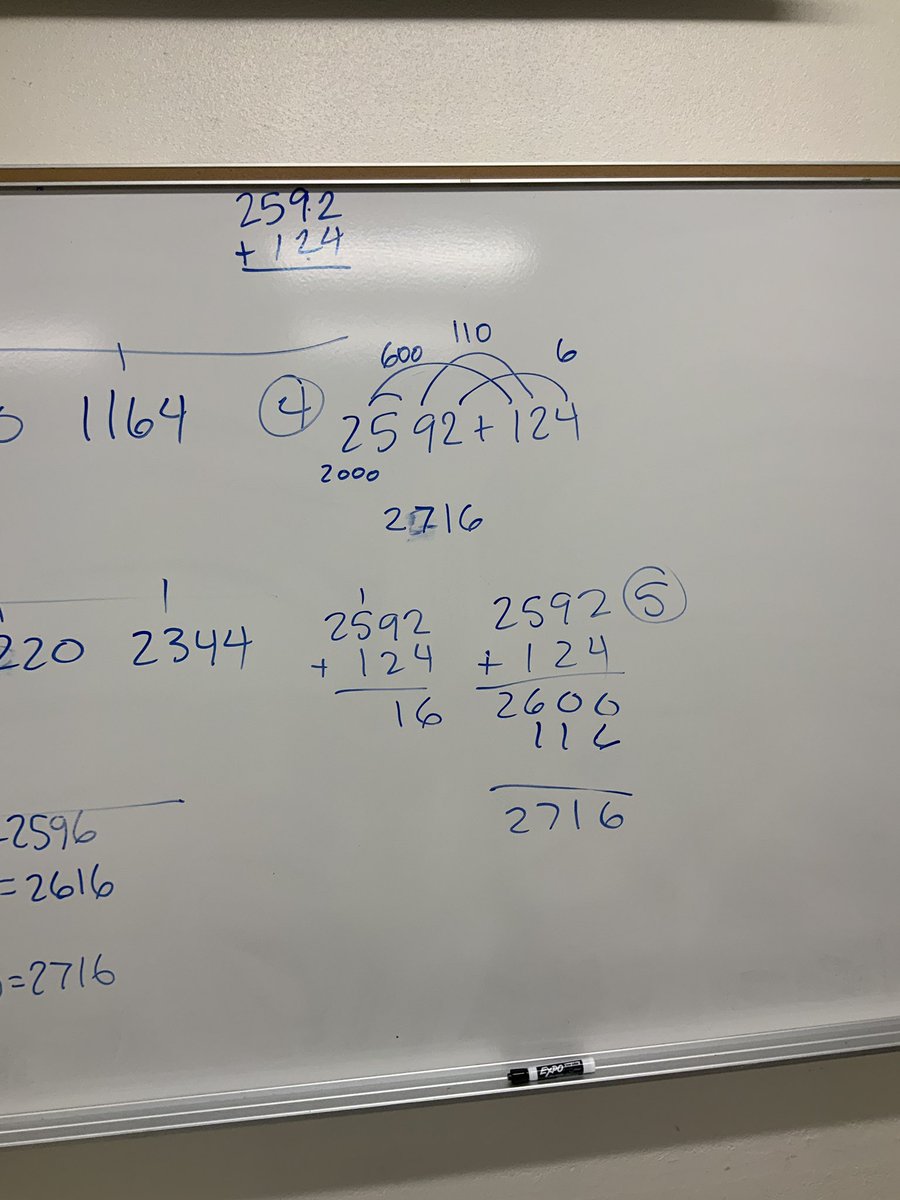 2592
+ 124
600 110 6
1164 ④ 2592 + 124
2000
2716
220 2344
1
2592
+ 124
16
2592 ⑤
+ 124
2600
116
2716
2596
= 2616
= 2716
EXPO